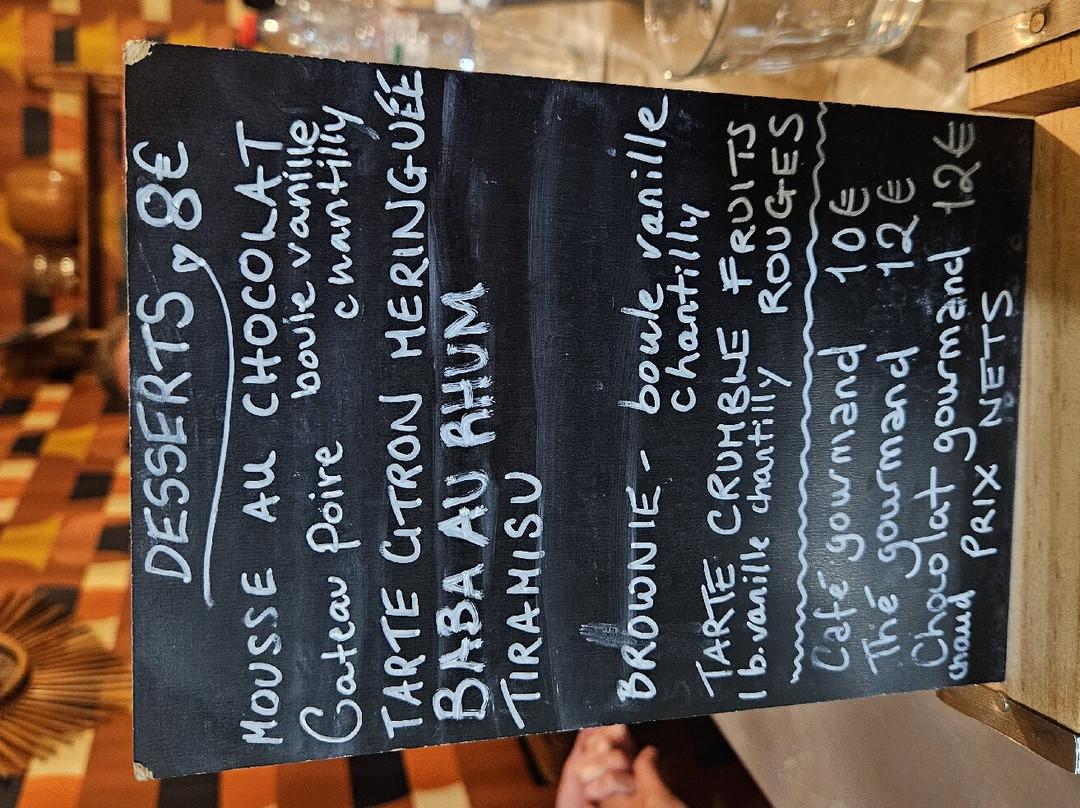 DESSERTS 8€
MOUSSE AU CHOCOLAT
Gateau Poire boule vanille
chantilly
TARTE CITRON MERINGUÉE
BABA AU RHUM
TIRAMISU
BROWNIE - boule vanille
chantilly
TARTE CRUMBLE FRUITS
1 b.vanille chantilly ROUGES
Café gourmand 10€
Thé gourmand 12€
Chocolat gourmand 12€
chaud PRIX NETS